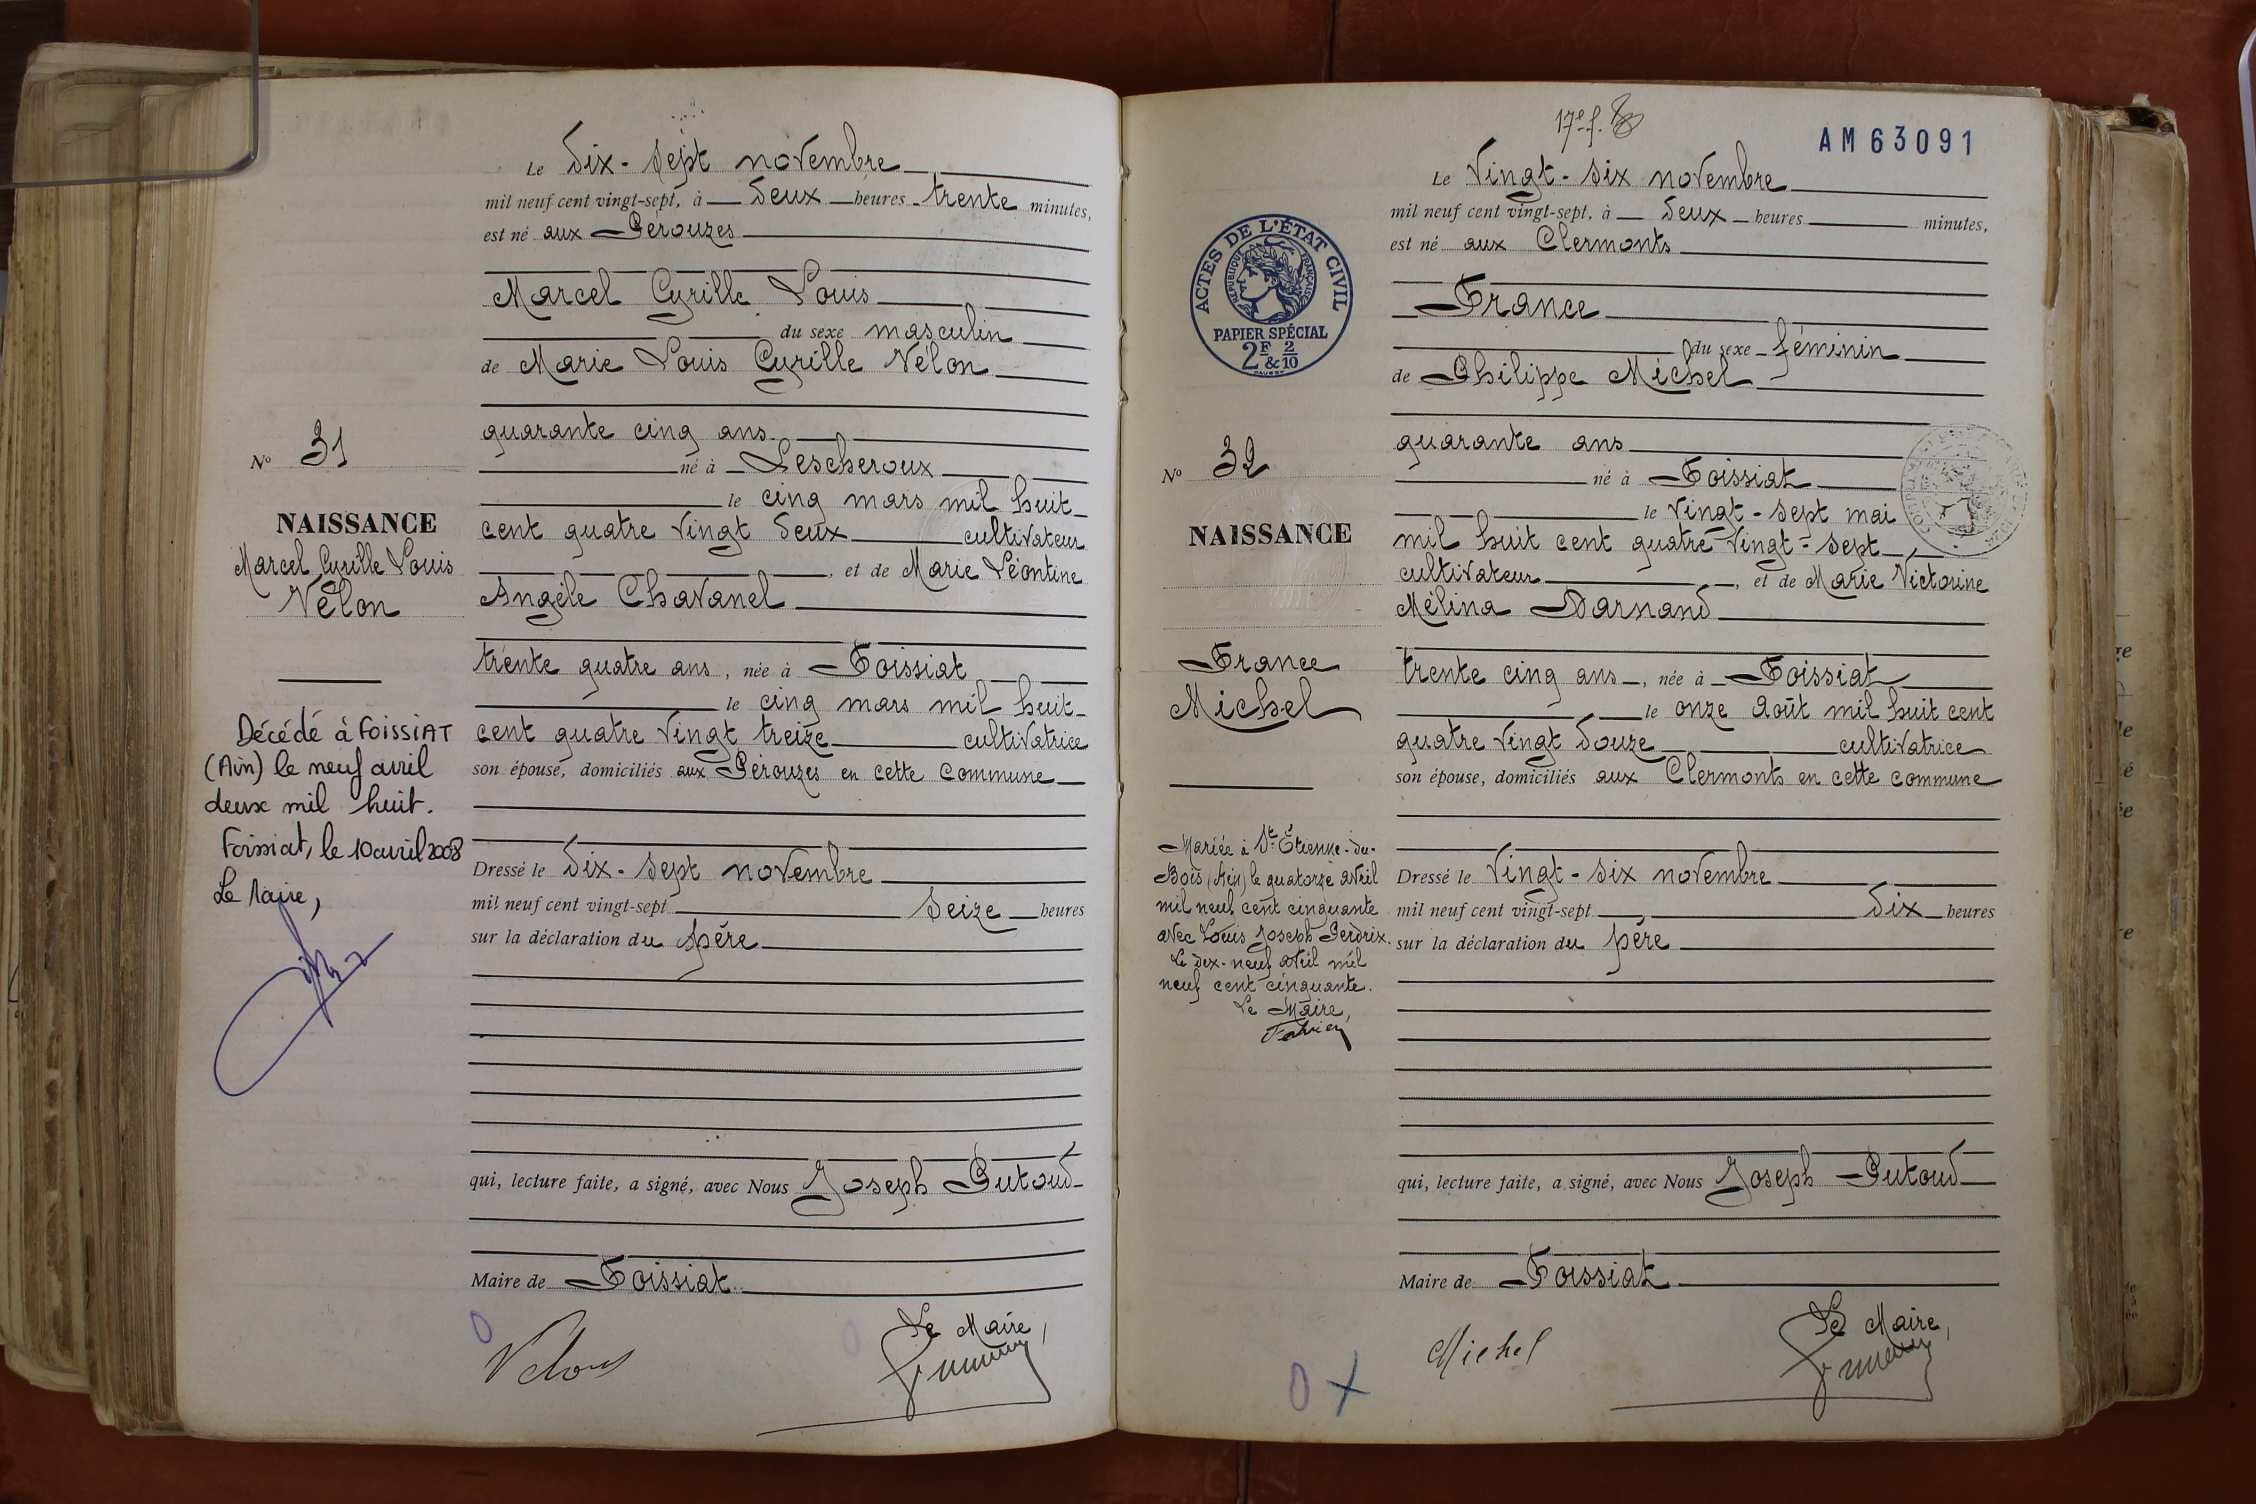 Le Dix-sept novembre
mil neuf cent vingt-sept, à deux heures trente minutes,
est né aux Pérouzes
Marcel Cyrille Louis
du sexe masculin
de Marie Louis Cyrille Vélon
quarante cinq ans
né à Lescheroux
le cinq mars mil huit
cent quatre vingt deux cultivateur
, et de Marie Léontine
Angèle Chavanel
trente quatre ans, née à Foissiat
le cinq mars mil huit
cent quatre vingt treize cultivatrice
son épouse, domiciliés aux Pérouzes en cette commune
Dressé le dix-sept novembre
mil neuf cent vingt-sept seize heures
sur la déclaration du père
qui, lecture faite, a signé, avec Nous Joseph Putoud
Maire de Foissiat
Le Maire,
Velon
N° 31
NAISSANCE
Marcel Cyrille Louis
Vélon
Décédé à FOISSIAT
(Ain) le neuf avril
deux mil huit.
Foissiat, le 10 avril 2008
Le Maire,
17e f.
AM63091
Le Vingt-six novembre
mil neuf cent vingt-sept, à deux heures minutes,
est né aux Clermonts
France
du sexe féminin
de Philippe Michel
quarante ans
né à Foissiat
le vingt-sept mai
mil huit cent quatre-vingt-sept
cultivateur, et de Marie Victorine
Mélina Darnand
trente cinq ans, née à Foissiat
le onze août mil huit cent
quatre vingt douze cultivatrice
son épouse, domiciliés aux Clermonts en cette commune
Dressé le vingt-six novembre
mil neuf cent vingt-sept dix heures
sur la déclaration du père
qui, lecture faite, a signé, avec Nous Joseph Putoud
Maire de Foissiat
Le Maire,
Michel
ACTES DE L'ÉTAT CIVIL
RÉPUBLIQUE FRANÇAISE
PAPIER SPÉCIAL
2F & 2/10
N° 32
NAISSANCE
France
Michel
Mariée à St Étienne-du-
Bois (Ain) le quatorze avril
mil neuf cent cinquante
avec Louis Joseph Perdrix.
Le dix-neuf avril mil
neuf cent cinquante.
Le Maire,